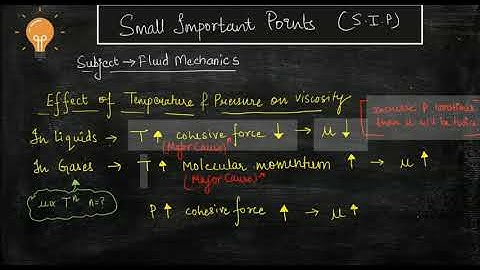 Small Important Points (S.I.P)
Subject → Fluid Mechanics
Effect of Temperature & Pressure on Viscosity
In Liquids → T ↑ cohesive force ↓ → μ ↓
(Major Cause)
In Gases → T ↑ Molecular momentum ↑ → μ ↑
(Major Cause)
μ ∝ Tⁿ n=?
P ↑ cohesive force ↑ → μ ↑
P
then μ will be twice